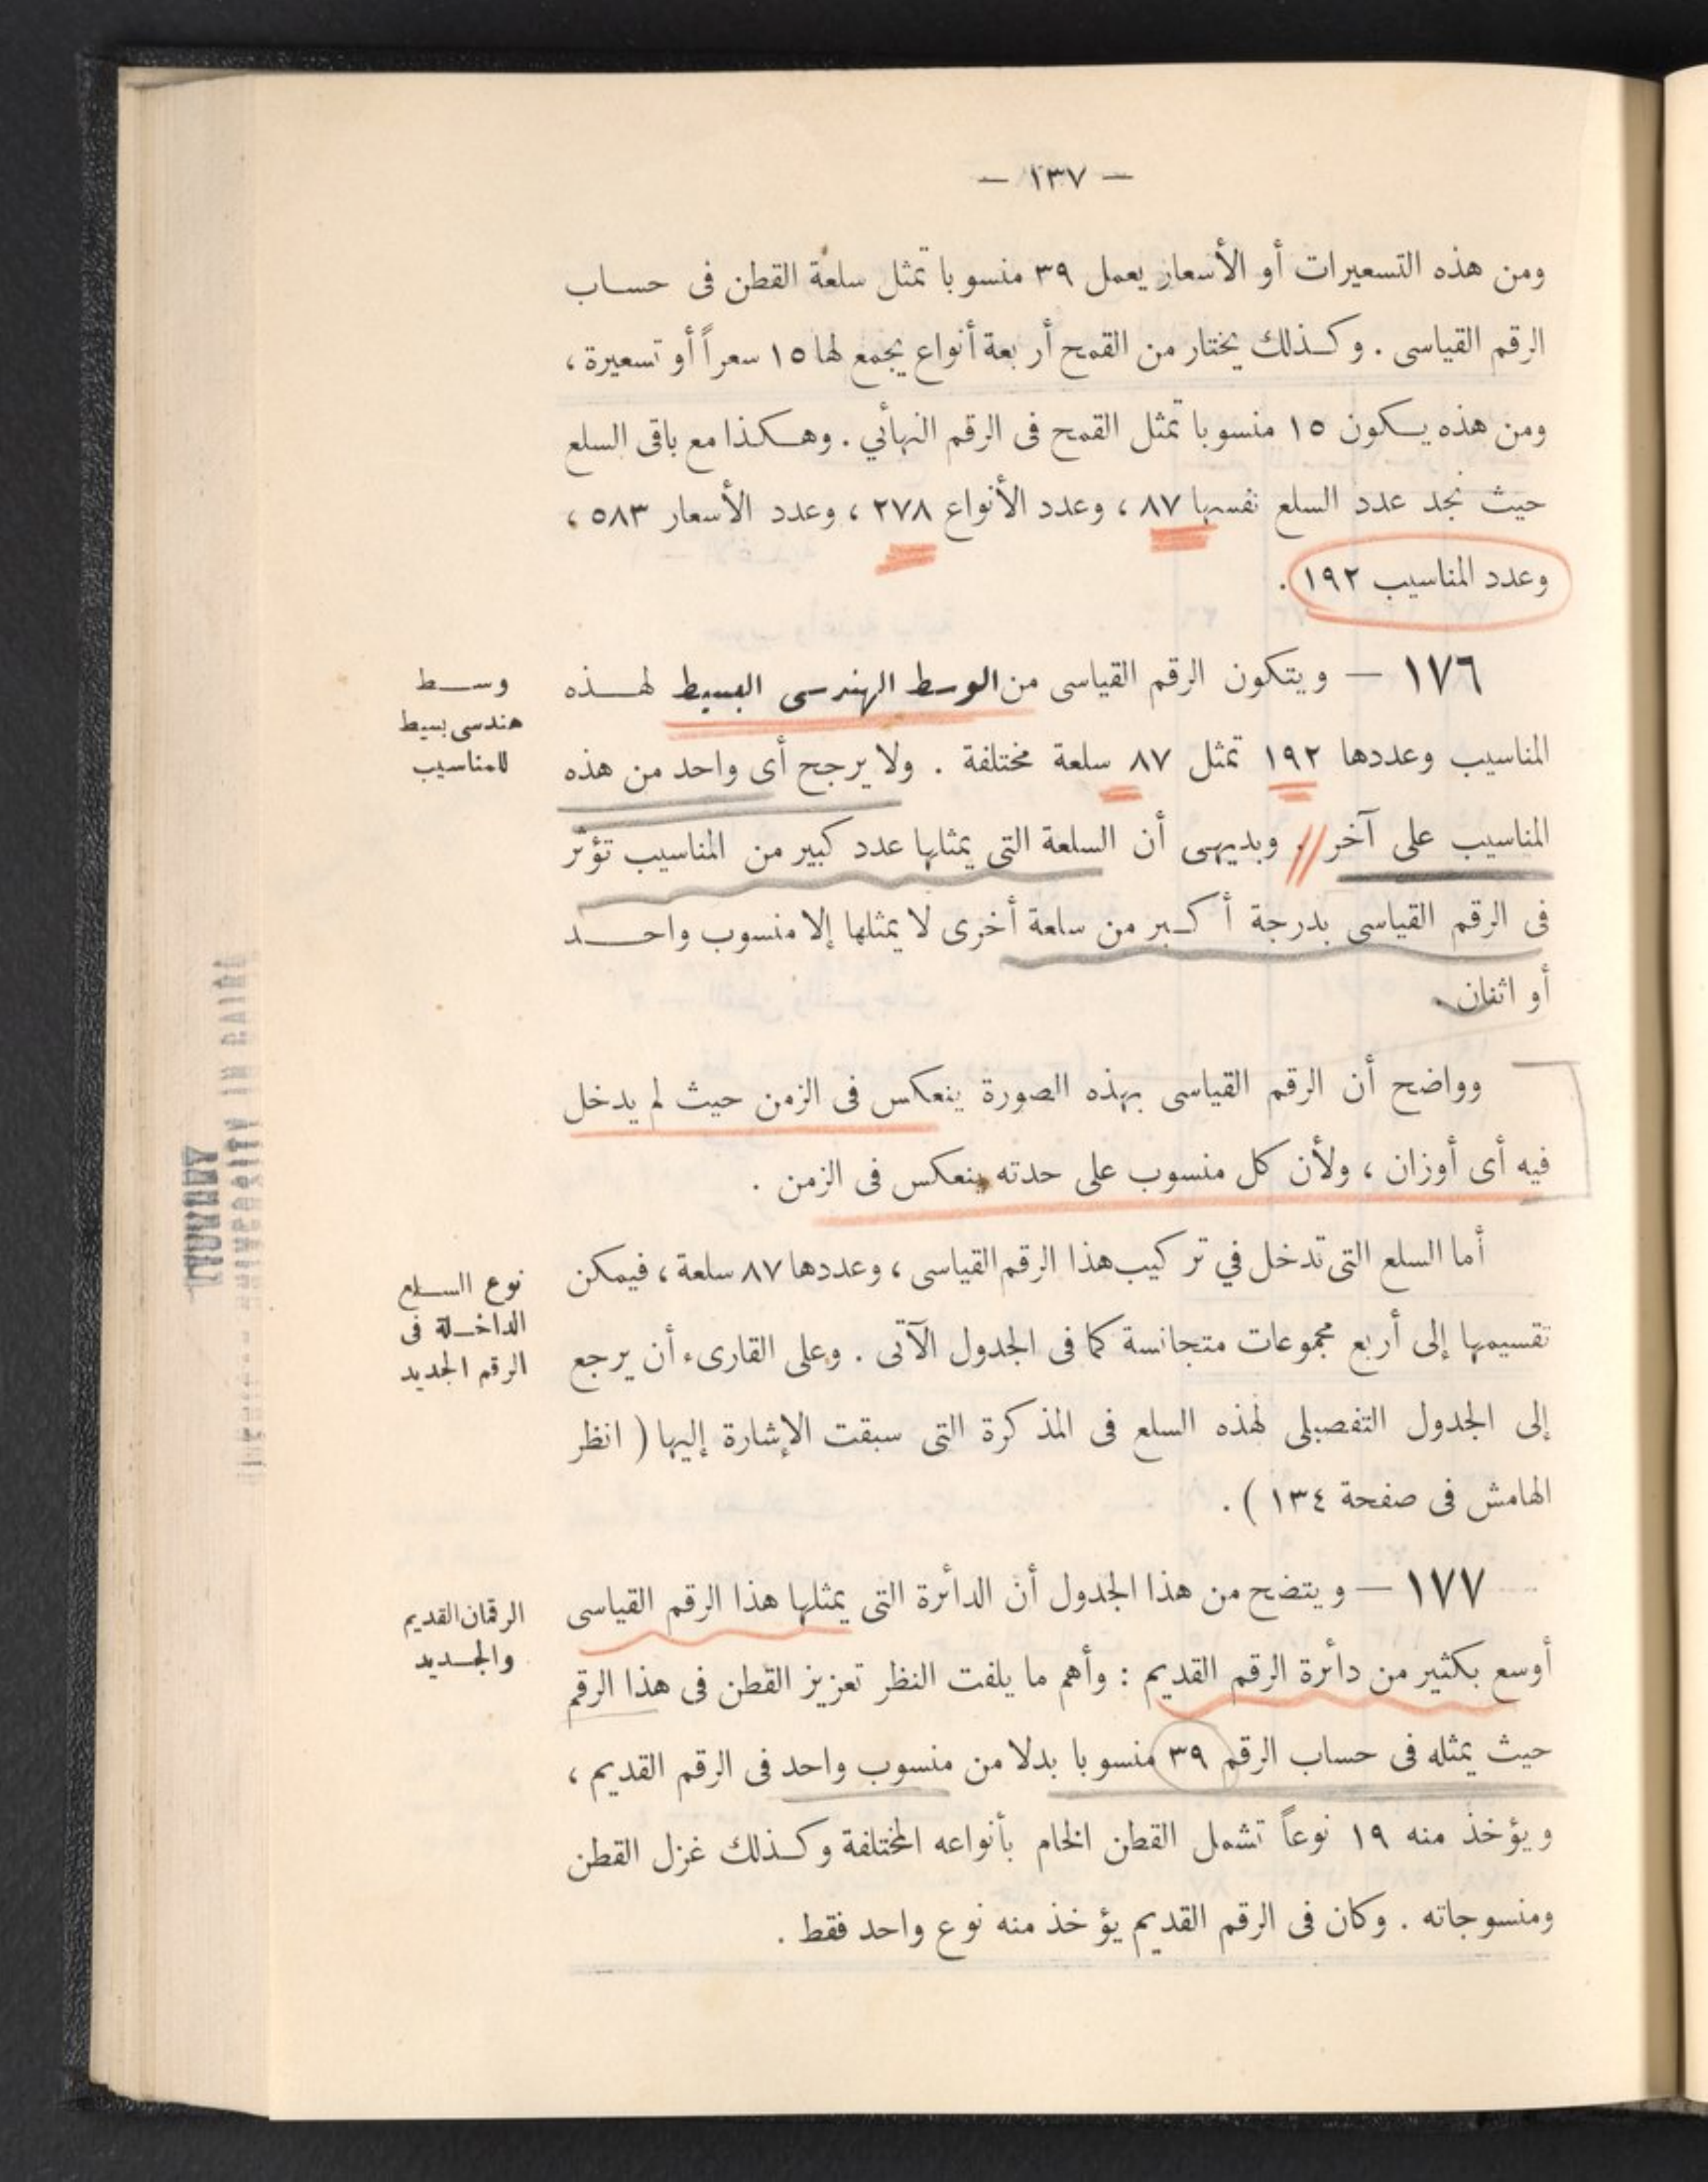 — ١٣٧ —
ومن هذه التسعيرات أو الأسعار يعمل ٣٩ منسوبا تمثل سلعة القطن فى حساب
الرقم القياسى . وكذلك يختار من القمح أربعة أنواع يجمع لها ١٥ سعراً أو تسعيرة ،
ومن هذه يكون ١٥ منسوبا تمثل القمح فى الرقم النهائي . وهكذا مع باقى السلع
حيث نجد عدد السلع نفسها ٨٧ ، وعدد الأنواع ٢٧٨ ، وعدد الأسعار ٥٨٣ ،
وعدد المناسيب ١٩٢ .
وسط
هندسى بسيط
للمناسيب
١٧٦ — ويتكون الرقم القياسى من الوسط الهندسى البسيط لهذه
المناسيب وعددها ١٩٢ تمثل ٨٧ سلعة مختلفة . ولا يرجح أى واحد من هذه
المناسيب على آخر . وبديهى أن السلعة التى يمثلها عدد كبير من المناسيب تؤثر
فى الرقم القياسى بدرجة أكبر من سلعة أخرى لا يمثلها إلا منسوب واحد
أو اثنان .
وواضح أن الرقم القياسى بهذه الصورة ينعكس فى الزمن حيث لم يدخل
فيه أى أوزان ، ولأن كل منسوب على حدته ينعكس فى الزمن .
نوع السلع
الداخلة فى
الرقم الجديد
أما السلع التى تدخل في تركيب هذا الرقم القياسى ، وعددها ٨٧ سلعة ، فيمكن
تقسيمها إلى أربع مجموعات متجانسة كما فى الجدول الآتى . وعلى القارىء أن يرجع
إلى الجدول التفصيلى لهذه السلع فى المذكرة التى سبقت الإشارة إليها ( انظر
الهامش فى صفحة ١٣٤ ) .
الرقمان القديم
والجديد
١٧٧ — ويتضح من هذا الجدول أن الدائرة التى يمثلها هذا الرقم القياسى
أوسع بكثير من دائرة الرقم القديم : وأهم ما يلفت النظر تعزيز القطن فى هذا الرقم
حيث يمثله فى حساب الرقم ٣٩ منسوبا بدلا من منسوب واحد فى الرقم القديم ،
ويؤخذ منه ١٩ نوعاً تشمل القطن الخام بأنواعه المختلفة وكذلك غزل القطن
ومنسوجاته . وكان فى الرقم القديم يؤخذ منه نوع واحد فقط .